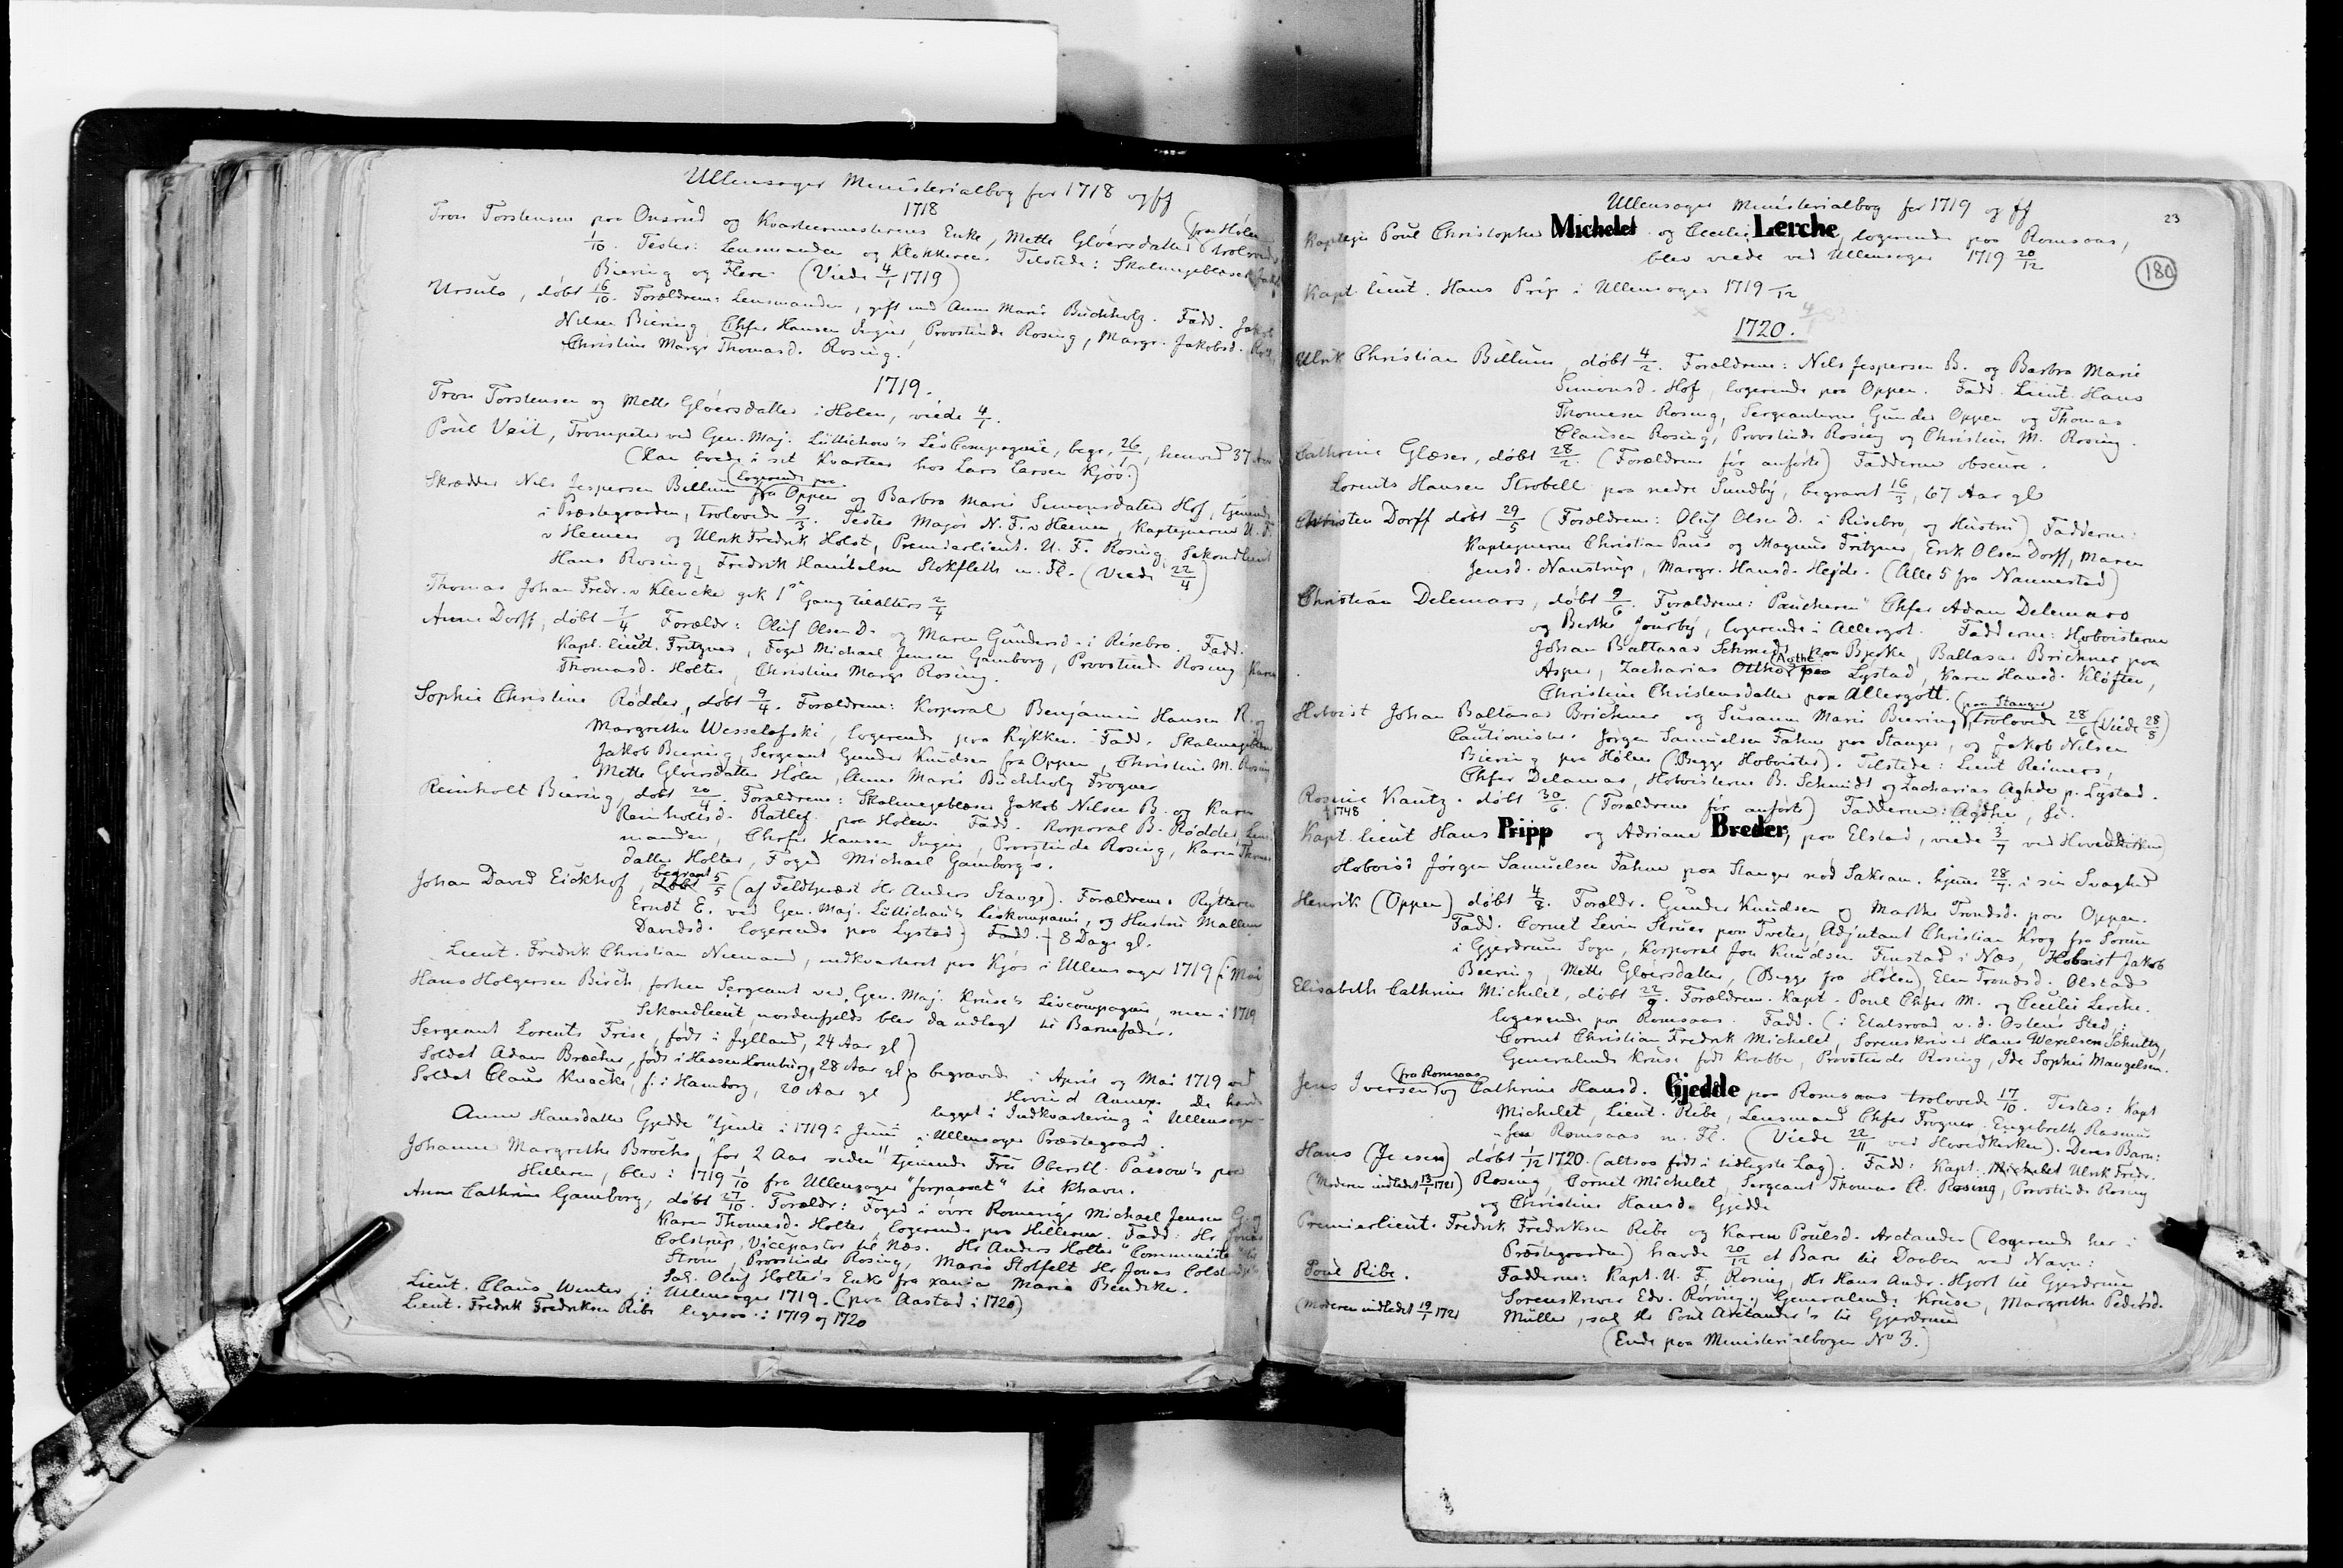 Ullensager Ministerialbog for 1718 og ff
1718
Tron Torstensen paa Onsrud og Kvarteermesterens Enke, Mette Gloersdatter (fra Holen) trolovede
1/10. Testes: Lensmanden og Klokkeren. Tilstede: Skalmeyeblæser Jakob
Biering og Flere. (Viede 4/1 1719)
Ursula, døbt 16/10. Forældrene: Lensmanden, gift med Anne Marie Buchholz. Fadd. Jakob
Nilsen Biering, Chfer Hansen Ingier, Provstinde Rosing, Margr. Jakobsd.
Christine Margr Thomasd. Rosing.
1719.
Tron Torstensen og Mette Gloersdatter i Holen, viede 4/1.
Poul Veit, Trompeter ved Gen. Maj. Lüttichow's Liv Compagnie, begr. 26/1, henved 37 Aar
(Han boede i sit Kvarteer hos Lars Larsen Kjøs.)
Skrædder Nils Jespersen Billum (logerende paa fra Oppen og Barbra Marie Simonsdatter Hof, tjenende
i Præstegaarden, trolovede 9/3. Testes Major N. F. v Heenen, Kaptejnerne U. F.
v Heenen og Ulrik Fredrik Holst, Premierlieut. U. F. Rosing, Sekondlieut
Hans Rosing, Fredrik Hanibalsen Stokfleth m. Fl. (Viede 22/4)
Thomas Johan Fredr. v Klencke gik 1ste Gang til alters 2/4
Anne Dorff, døbt 7/4 Forældr: Oluf Olsen D. og Maren Gundersd. i Risebro. Fadd.
Kapt. lieut. Fritzner, Foged Michael Jensen Gamborg, Provstinde Rosing, Karen
Thomasd. Holter, Christine Margr Rosing.
Sophie Christine Rødder, døbt 9/4. Forældrene: Korporal Benjamin Hansen R. og
Margrethe Wesselofski, logerende paa Rykken. Fadd. Skalmeyeblæser
Jakob Biering, Sergeant Gunder Knudsen fra Oppen, Christine M. Rosing
Mette Gloersdatter Holen, Anne Marie Buchholz Frogner
Reinholt Biering, døbt 20/4. Forældrene: Skalmeyeblæser Jakob Nilsen B. og Karen
Reinholtsd. Ratlef paa Holen. Fadd. Korporal B. Rødder, Lens
manden, Chrfr Hansen Ingier, Provstinde Rosing, Karen Thomas
datter Holter, Foged Michael Gamborg's.
Johan David Eickhof, begravet døbt 5/5 (af Feldtpræst Hr Anders Stange). Forældrene: Rytteren
Erndt E. ved Gen. Maj. Lüttichau's livkompani, og Hustru Mallene
Davidsd. logerende paa Lystad) Fadd. † 8 Dage gl.
Lieut. Fredrik Christian Niemand, indkvarteret paa Kjøs i Ullensager 1719 (i Mai)
Hans Holgersen Birch, forhen Sergeant ved Gen. Maj. Kruse's Livcompagni, men i 1719
Sekondlieut, nordenfjelds blev da udlagt til Barnefader.
Sergeant Lorents Frise, født i Jylland, 24 Aar gl
Soldat Adam Bræcher, født i Hessen Homburg, 28 Aar gl } begravede i April og Mai 1719 ved
Soldat Claus Knacke, f. i Hamborg, 20 Aar gl Hovind Annex. De havde
ligget i Indkvartering i Ullensager
Anne Hansdatter Gjedde "tjente i 1719 i Juni i Ullensager Præstegaard.
Johanne Margrethe Brochs, "for 2 Aar siden" tjenende Fru Oberstl. Passow's paa
Hilleren, blev i 1719 1/10 fra Ullensager "forpasset" til Khavn.
Anne Cathrine Gamborg, døbt 27/10. Forældr: Foged i øvre Romerige Michael Jensen G. og
Karen Thomasd. Holter, logerende paa Hilleren. Fadd: Hr Jonas
Colstrup, Vicepastor til Næs. Hr Anders Holter "Communister" til
Strøm, Provstinde Rosing, Marie Stolfelt Hr Jonas Colstrup's
Sal. Oluf Holter's Enke fra xania Maria Bendike.
Lieut. Claus Winter, i Ullensager 1719. (paa Aastad i 1720)
Lieut. Fredrik Fredriksen Ribe ligesaa i 1719 og 1720
Ullensager Ministerialbog for 1719 og ff
23
180
Kaptejn Poul Christopher Michelet og Cecilie Lerche, logerende paa Romsaas,
blev viede ved Ullensager 1719 20/12
Kapt. lieut. Hans Prip i Ullensager 1719 /12
1720.
Ulrik Christian Billum, døbt 4/2. Forældrene: Nils Jespersen B. og Barbra Marie
Simonsd. Hof, logerende paa Oppen. Fadd. Lieut. Hans
Thomesen Rosing, Sergeanterne Gunder Oppen og Thomas
Clausen Rosing, Provstinde Rosing og Christine M. Rosing.
Cathrine Glæser, døbt 28/2. (Forældrene før anførte) Fadderne obscure.
Lorents Hansen Strobell paa nedre Sundby, begravet 16/3, 67 Aar gl
Christen Dorff døbt 29/5 (Forældrene: Oluf Olsen D. i Risebro, og Hustru) Fadderne:
Kaptejnerne Christian Paus og Magnus Fritzner, Erik Olsen Dorff, Maren
Jensd. Naustrup, Margr. Hansd. Hejde. (Alle 5 fra Nannestad)
Christian Delemars, døbt 9/6. Forældrene: "Paucheren" Chfer Adam Delemars
og Berthe Jonsby, logerende i Allergot. Fadderne: Hoboisterne
Johan Baltasar Schmidt paa Bjerke, Baltasar Brichner paa
Asper, Zacharias Ottho (Agthe) paa Lystad, Karen Hansd. Kløften,
Christine Christensdatter paa Allergott.
Hoboist Johan Baltasar Brichner og Susanne Marie Biering (paa Stanger) trolovede 28/6 (Viede 28/8)
Cautionister. Jørgen Samuelsen Fahne paa Stanger, og Jakob Nilsen
Biering paa Holen (Begge Hoboister). Tilstede: Lieut Reimers,
Chfer Delamas, Hoboisterne B. Schmidt og Zacharias Aghde p. Lystad.
Rosine Kautz. døbt 30/6. (Forældrene før anførte) Fadderne: Agdhe, &c.
† 1748
Kapt. lieut Hans Pripp og Adriane Breder, paa Elstad, viede 3/7 ved Hovedkirken)
Hoboist Jørgen Samuelsen Fahne paa Stanger nød Sakram. hjeme 28/7. i sin Svaghed
Henrik (Oppen) døbt 4/8. Forældr. Gunder Knudsen og Marthe Trondsd. paa Oppen.
Fadd. Cornet Levin Struer paa Tveter, Adjutant Christian Krog fra Sørum
i Gjerdrum Sogn, Korporal Jon Knudsen Finstad i Næs, Hoboist Jakob
Biering, Mette Gloersdatter, (Begge fra Holen) Elen Trondsd. Olstad
Elisabeth Cathrine Michelet, døbt 22/9. Forældrene. Kapt. Poul Chfer M. og Cecilie Lerche.
logerende paa Romsaas. Fadd. (i Etatsraad v. d. Osten's Sted):
Cornet Christian Fredrik Michelet, Sorenskriver Hans Wexelsen Schultz,
Generalinde Kruse født Krabbe, Provstinde Rosing, Ide Sophie Mangelsen.
Jens Iversen (fra Romsaas) og Cathrine Hansd. Gjedde paa Romsaas trolovede 17/10. Testes: Kapt
Michelet, Lieut. Ribe, Lensmand Chfer Frogner. Engebreth Rasmus
sen Romsaas m. Fl. (Viede 22/11 ved Hovedkirken). Deres Barn:
Hans (Jensen) døbt 1/12 1720. (altsaa født i tidligste Lag). Fadd: Kapt. Michelet Ulrik Fredr.
(Moderen indledet 13/1 1721) Rosing, Cornet Michelet, Sergeant Thomas Cl. Rosing, Provstinde Rosing
og Christine Hansd. Gjedde
Premierlieut. Fredrik Fredriksen Ribe og Karen Poulsd. Arctander (logerende her i
Præstegaarden) havde 20/12 et Barn til Daaben ved Navn:
Poul Ribe. Fadderne: Kapt. U. F. Rosing, Hr Hans Andr. Hjort til Gjerdrum
Sorenskriver Edv. Røring, Generalinde Kruse, Margrethe Pedersd.
(Moderen indledet 19/1 1721 Müller, sal Hr Poul Arctander's til Gjerdrum
(Ende paa Ministerialbogen No 3.)